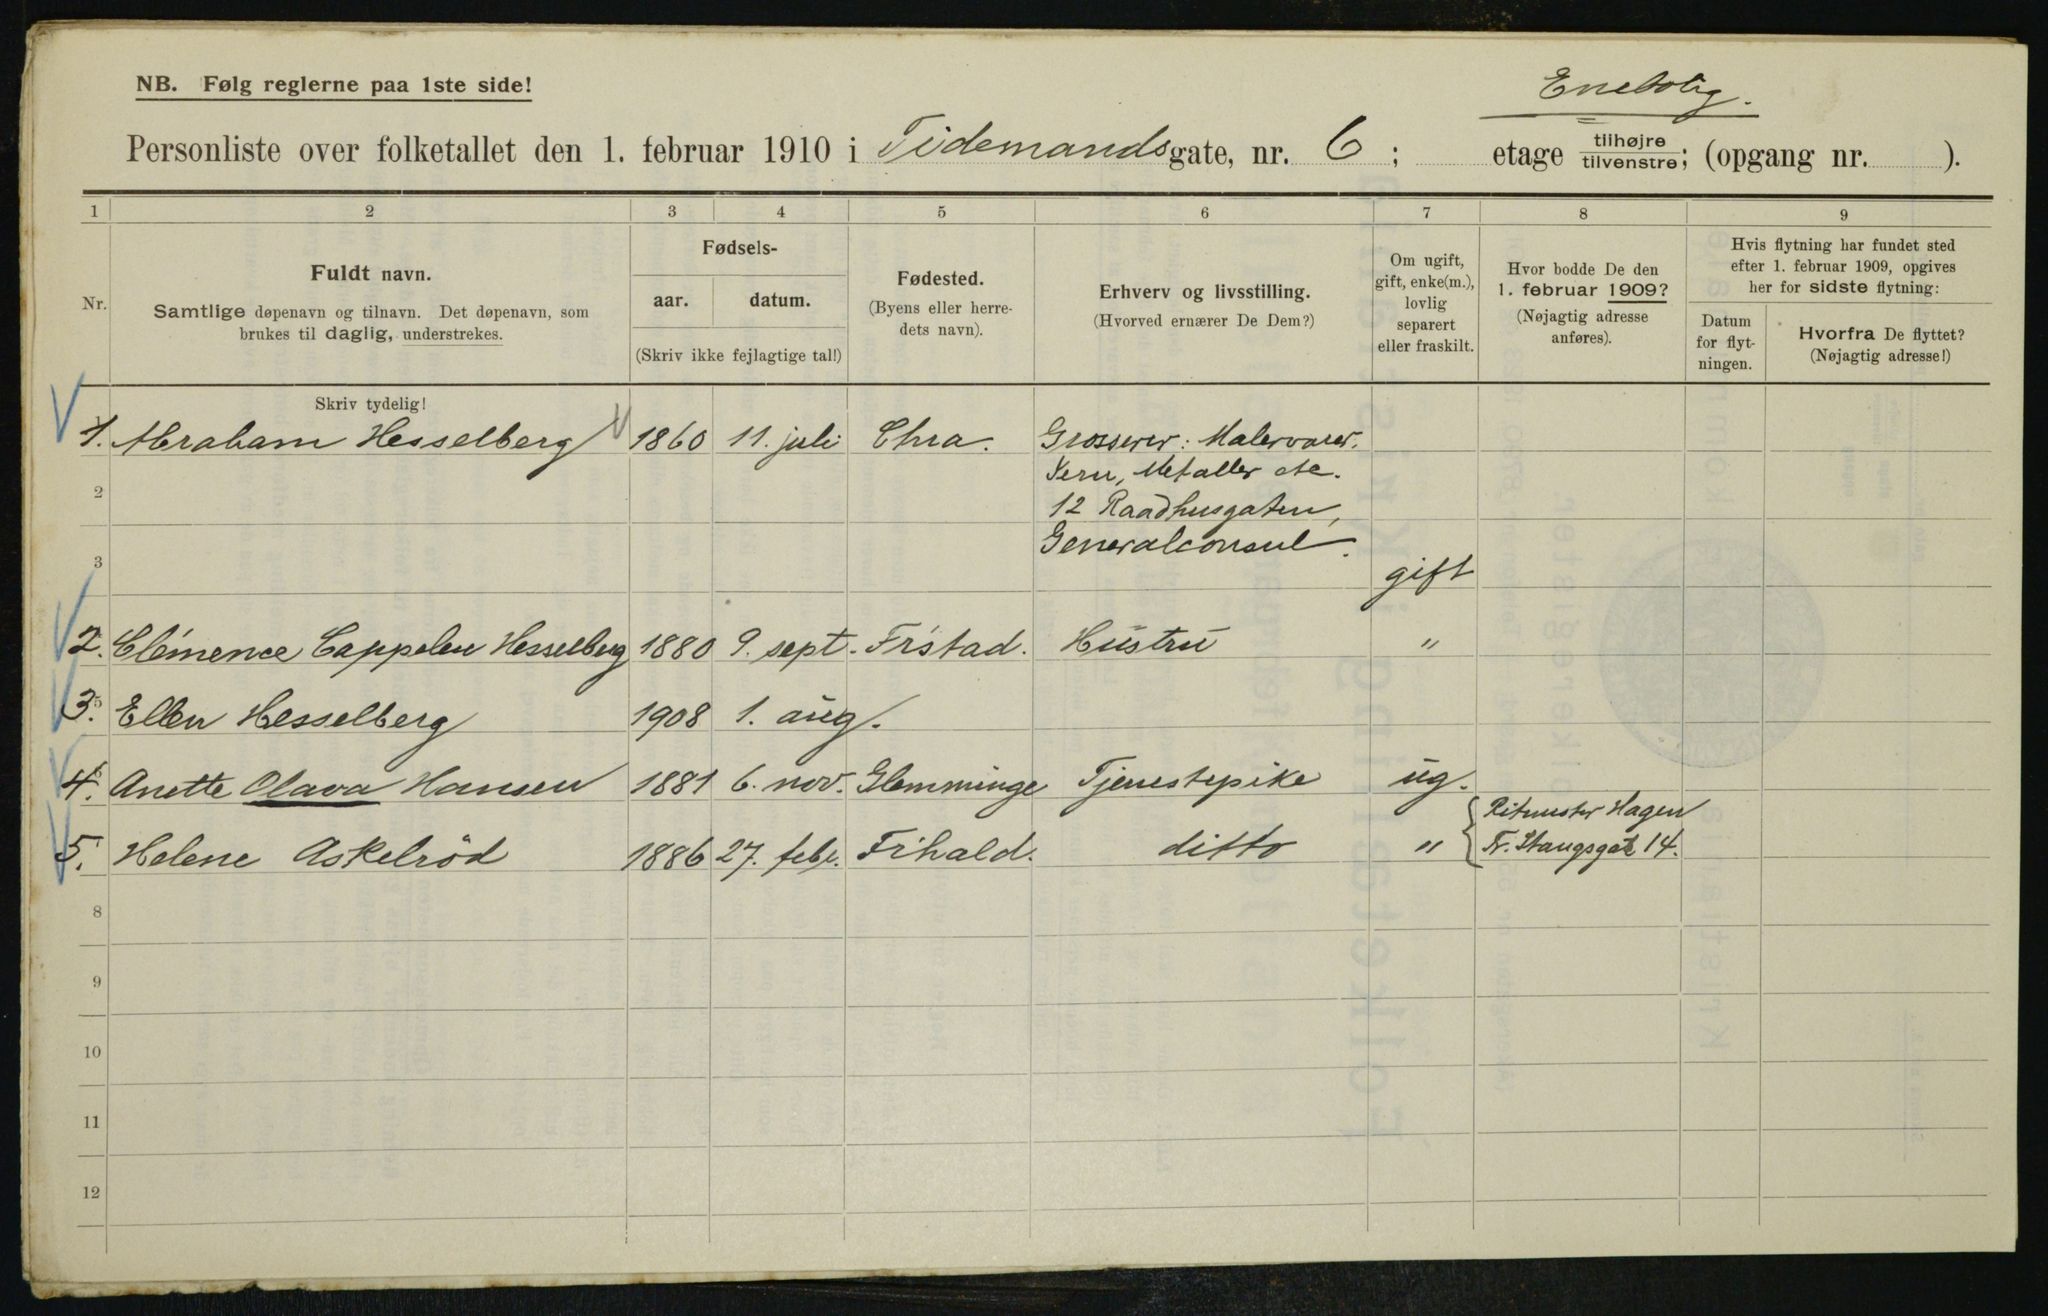 NB. Følg reglerne paa 1ste side!
Enebolig.
Personliste over folketallet den 1. februar 1910 i Tidemandsgate, nr. 6; etage tilhøjre tilvenstre; (opgang nr. ).
1 2 3 4 5 6 7 8 9
Nr.
Fuldt navn.
Samtlige døpenavn og tilnavn. Det døpenavn, som
brukes til daglig, understrekes.
Skriv tydelig!
Fødsels-
aar. datum.
(Skriv ikke fejlagtige tal!)
Fødested.
(Byens eller herre-
dets navn).
Erhverv og livsstilling.
(Hvorved ernærer De Dem?)
Om ugift,
gift, enke(m.),
lovlig
separert
eller fraskilt.
Hvor bodde De den
1. februar 1909?
(Nøjagtig adresse
anføres).
Hvis flytning har fundet sted
efter 1. februar 1909, opgives
her for sidste flytning:
Datum
for flyt-
ningen.
Hvorfra De flyttet?
(Nøjagtig adresse!)
1. Abraham Hesselberg 1860 11. juli Chra. Grosserer: Malervarer,
Jern, Metaller etc.
2
12 Raadhusgaten,
Generalconsul.
3
gift
2. Clémence Cappelen Hesselberg 1880 9. sept. Fr'stad. Hustru "
3. Ellen Hesselberg 1908 1. aug.
4. Anette Olava Hansen 1881 6. nov. Glemminge Tjenestepike ug.
5. Helene Askelröd 1886 27. febr. F'hald. ditto " { Ritmester Hagen
Fr. Stangsgate 14.
8
9
10
11
12